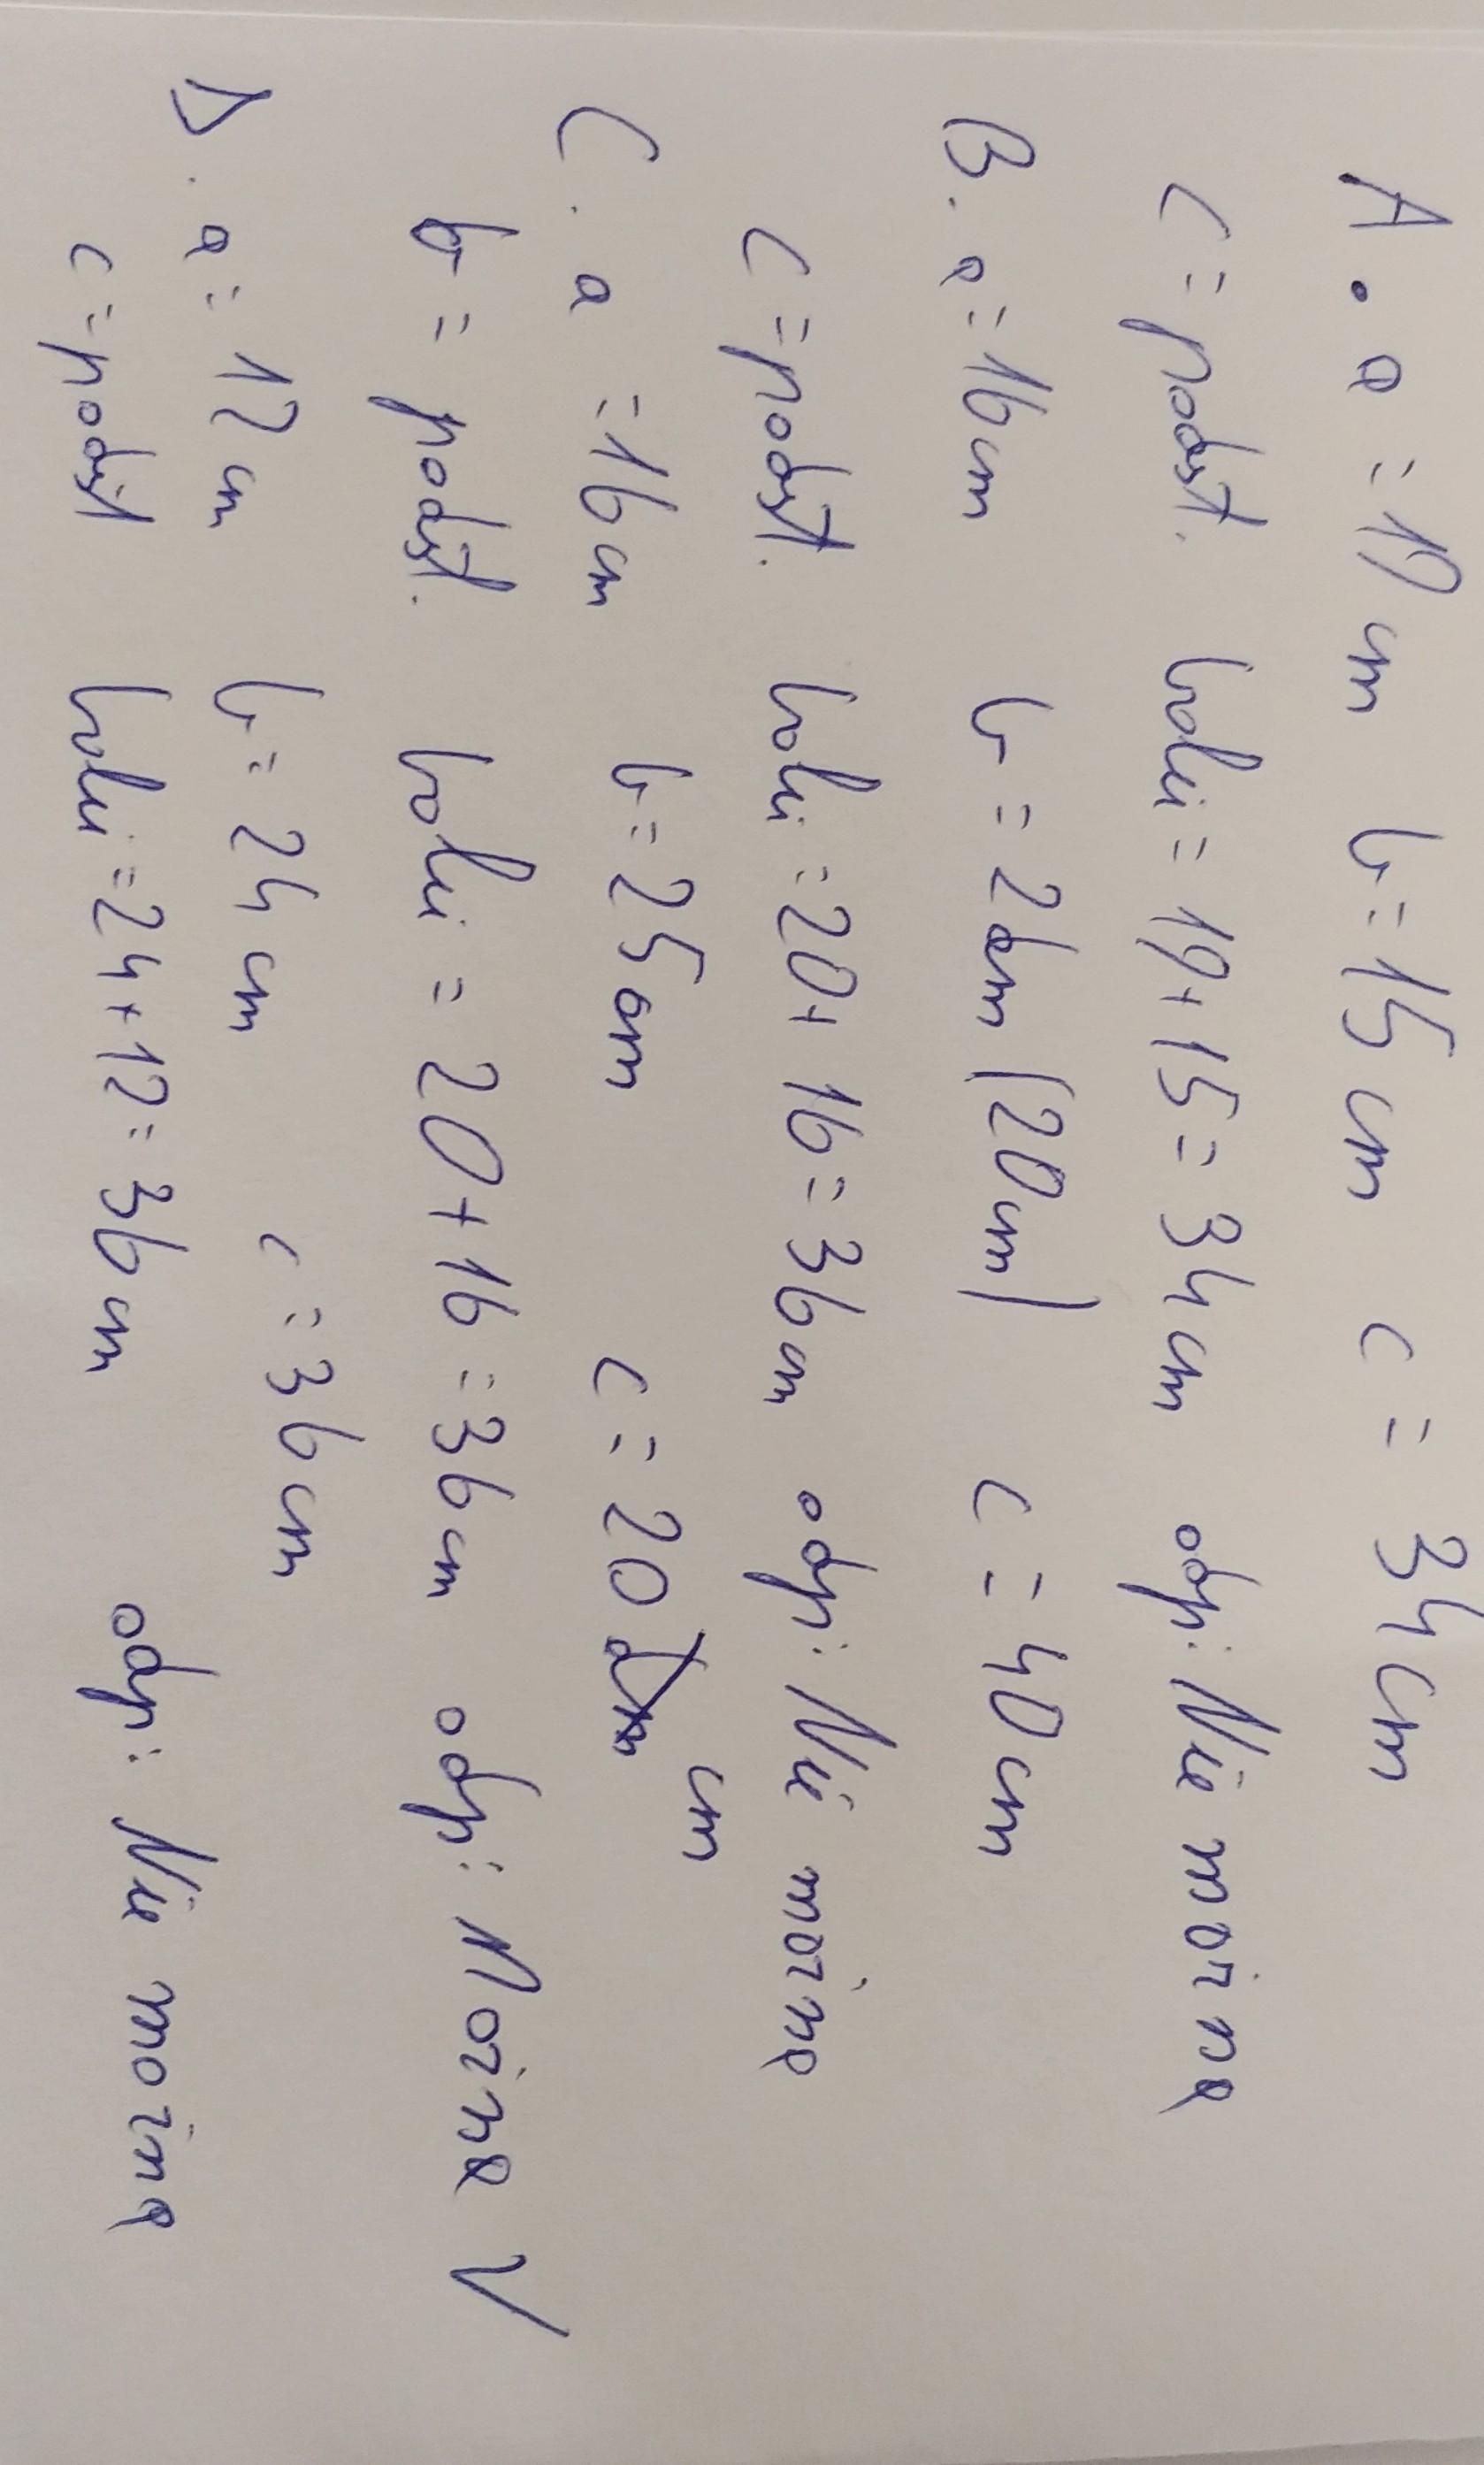 A. a = 19 cm b = 15 cm c = 34 cm
c = podst. boki = 19 + 15 = 34 cm odp: Nie można
B. a = 16 cm b = 2 dm (20 cm) c = 40 cm
c = podst. boki = 20 + 16 = 36 cm odp: Nie można
C. a = 16 cm b = 25 cm c = 20 cm
b = podst. boki = 20 + 16 = 36 cm odp: Można V
D. a = 12 cm b = 24 cm c = 36 cm
c = podst boki = 24 + 12 = 36 cm odp: Nie można